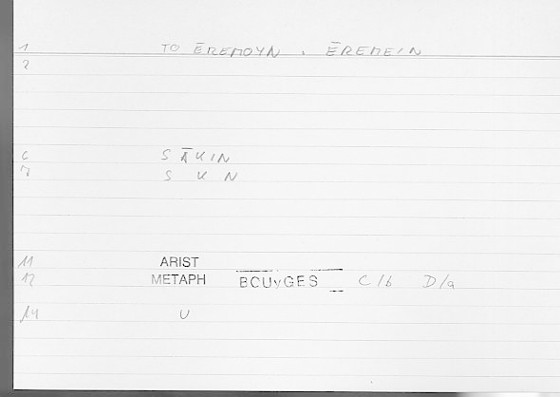 1 TO ĒREMOYN , ĒREMEIN
2
6 SĀKIN
7 S K N
11 ARIST
12 METAPH BOUyGES C/b D/a
14 U